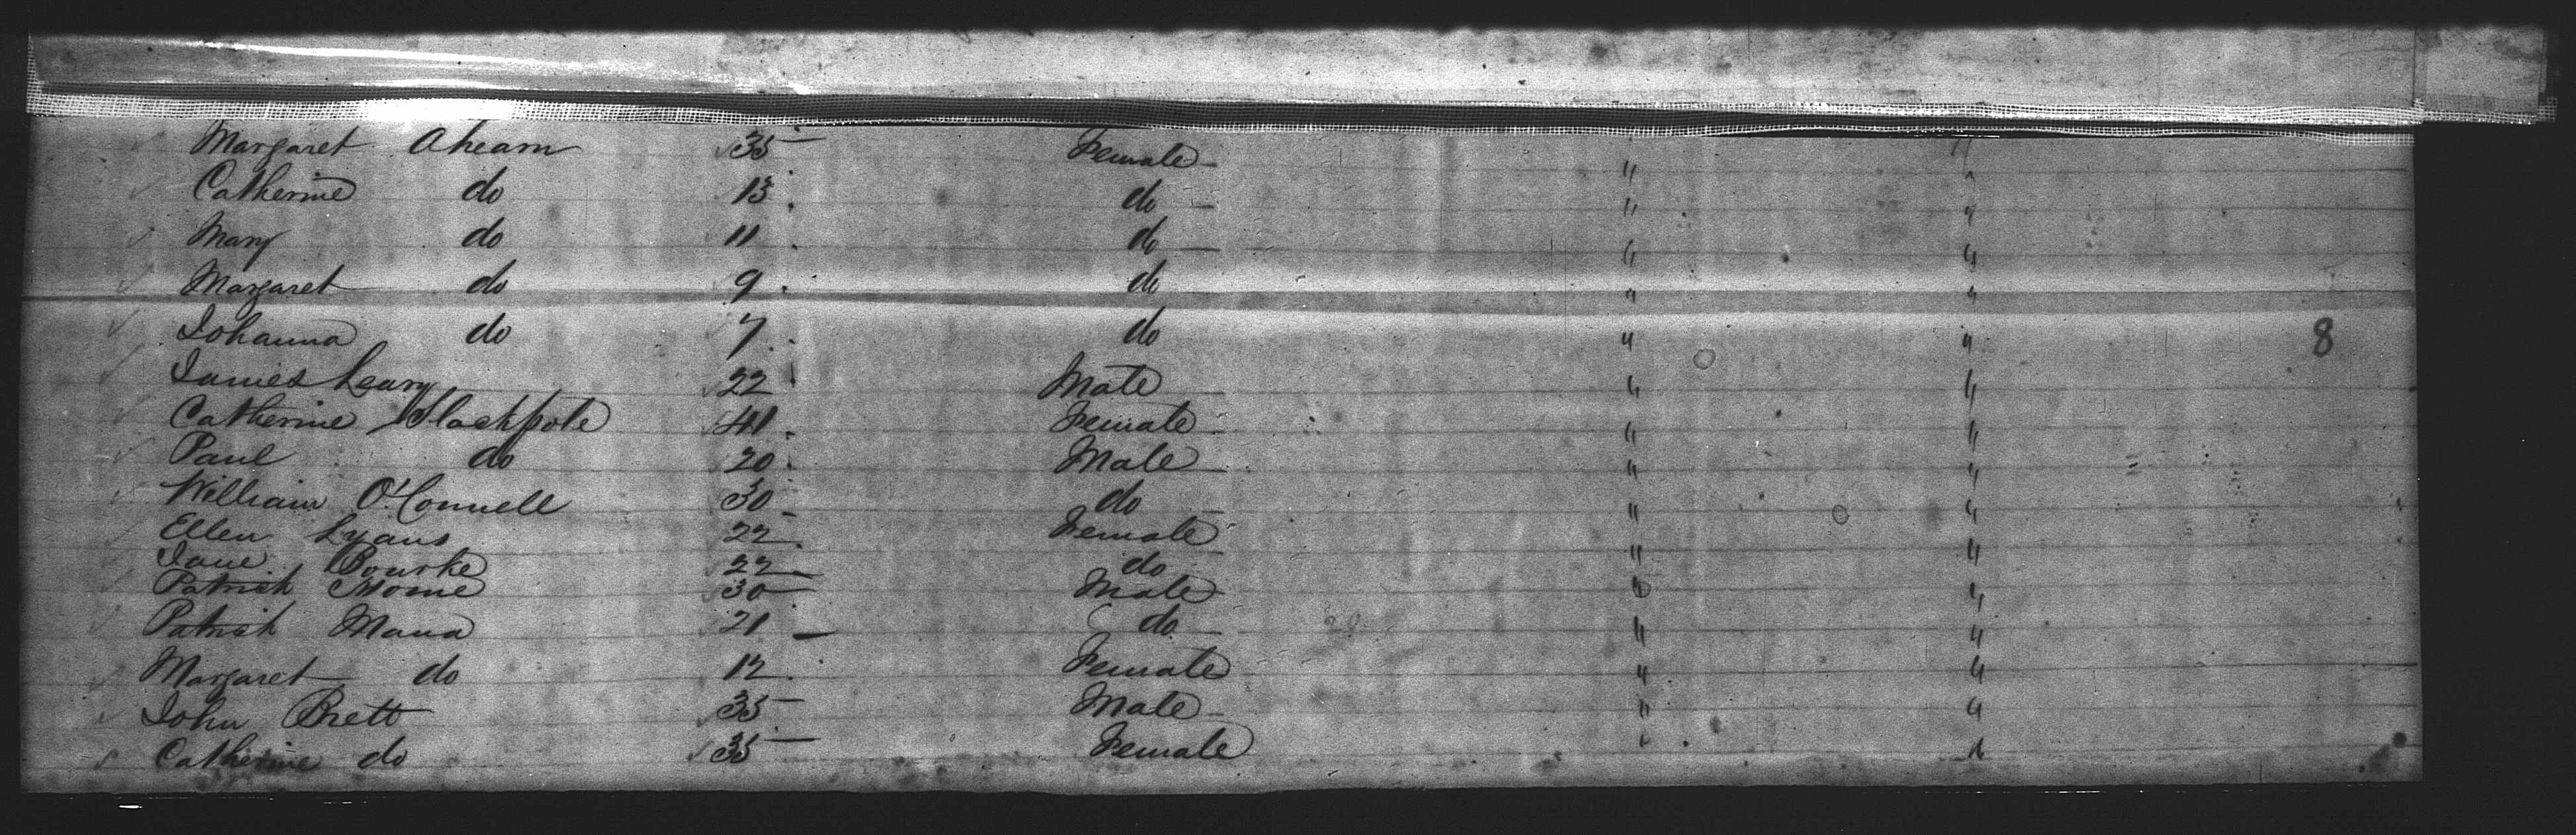 Margaret Ahearn 35 Female " "
Catherine do 13 do " "
Mary do 11 do " "
Margaret do 9 do " "
Johanna do 7 do " " 8
James Leary 22 Male " "
Catherine Slackpole 41 Female " "
Paul do 20 Male " "
William O'Connell 30 do " "
Ellen Lyans 22 Female " "
Jane Bourke 22 do " "
Patrick 30 Male " "
Patrick Mana 21 do " "
Margaret do 12 Female " "
John Brett 35 Male " "
Catherine do 35 Female " "